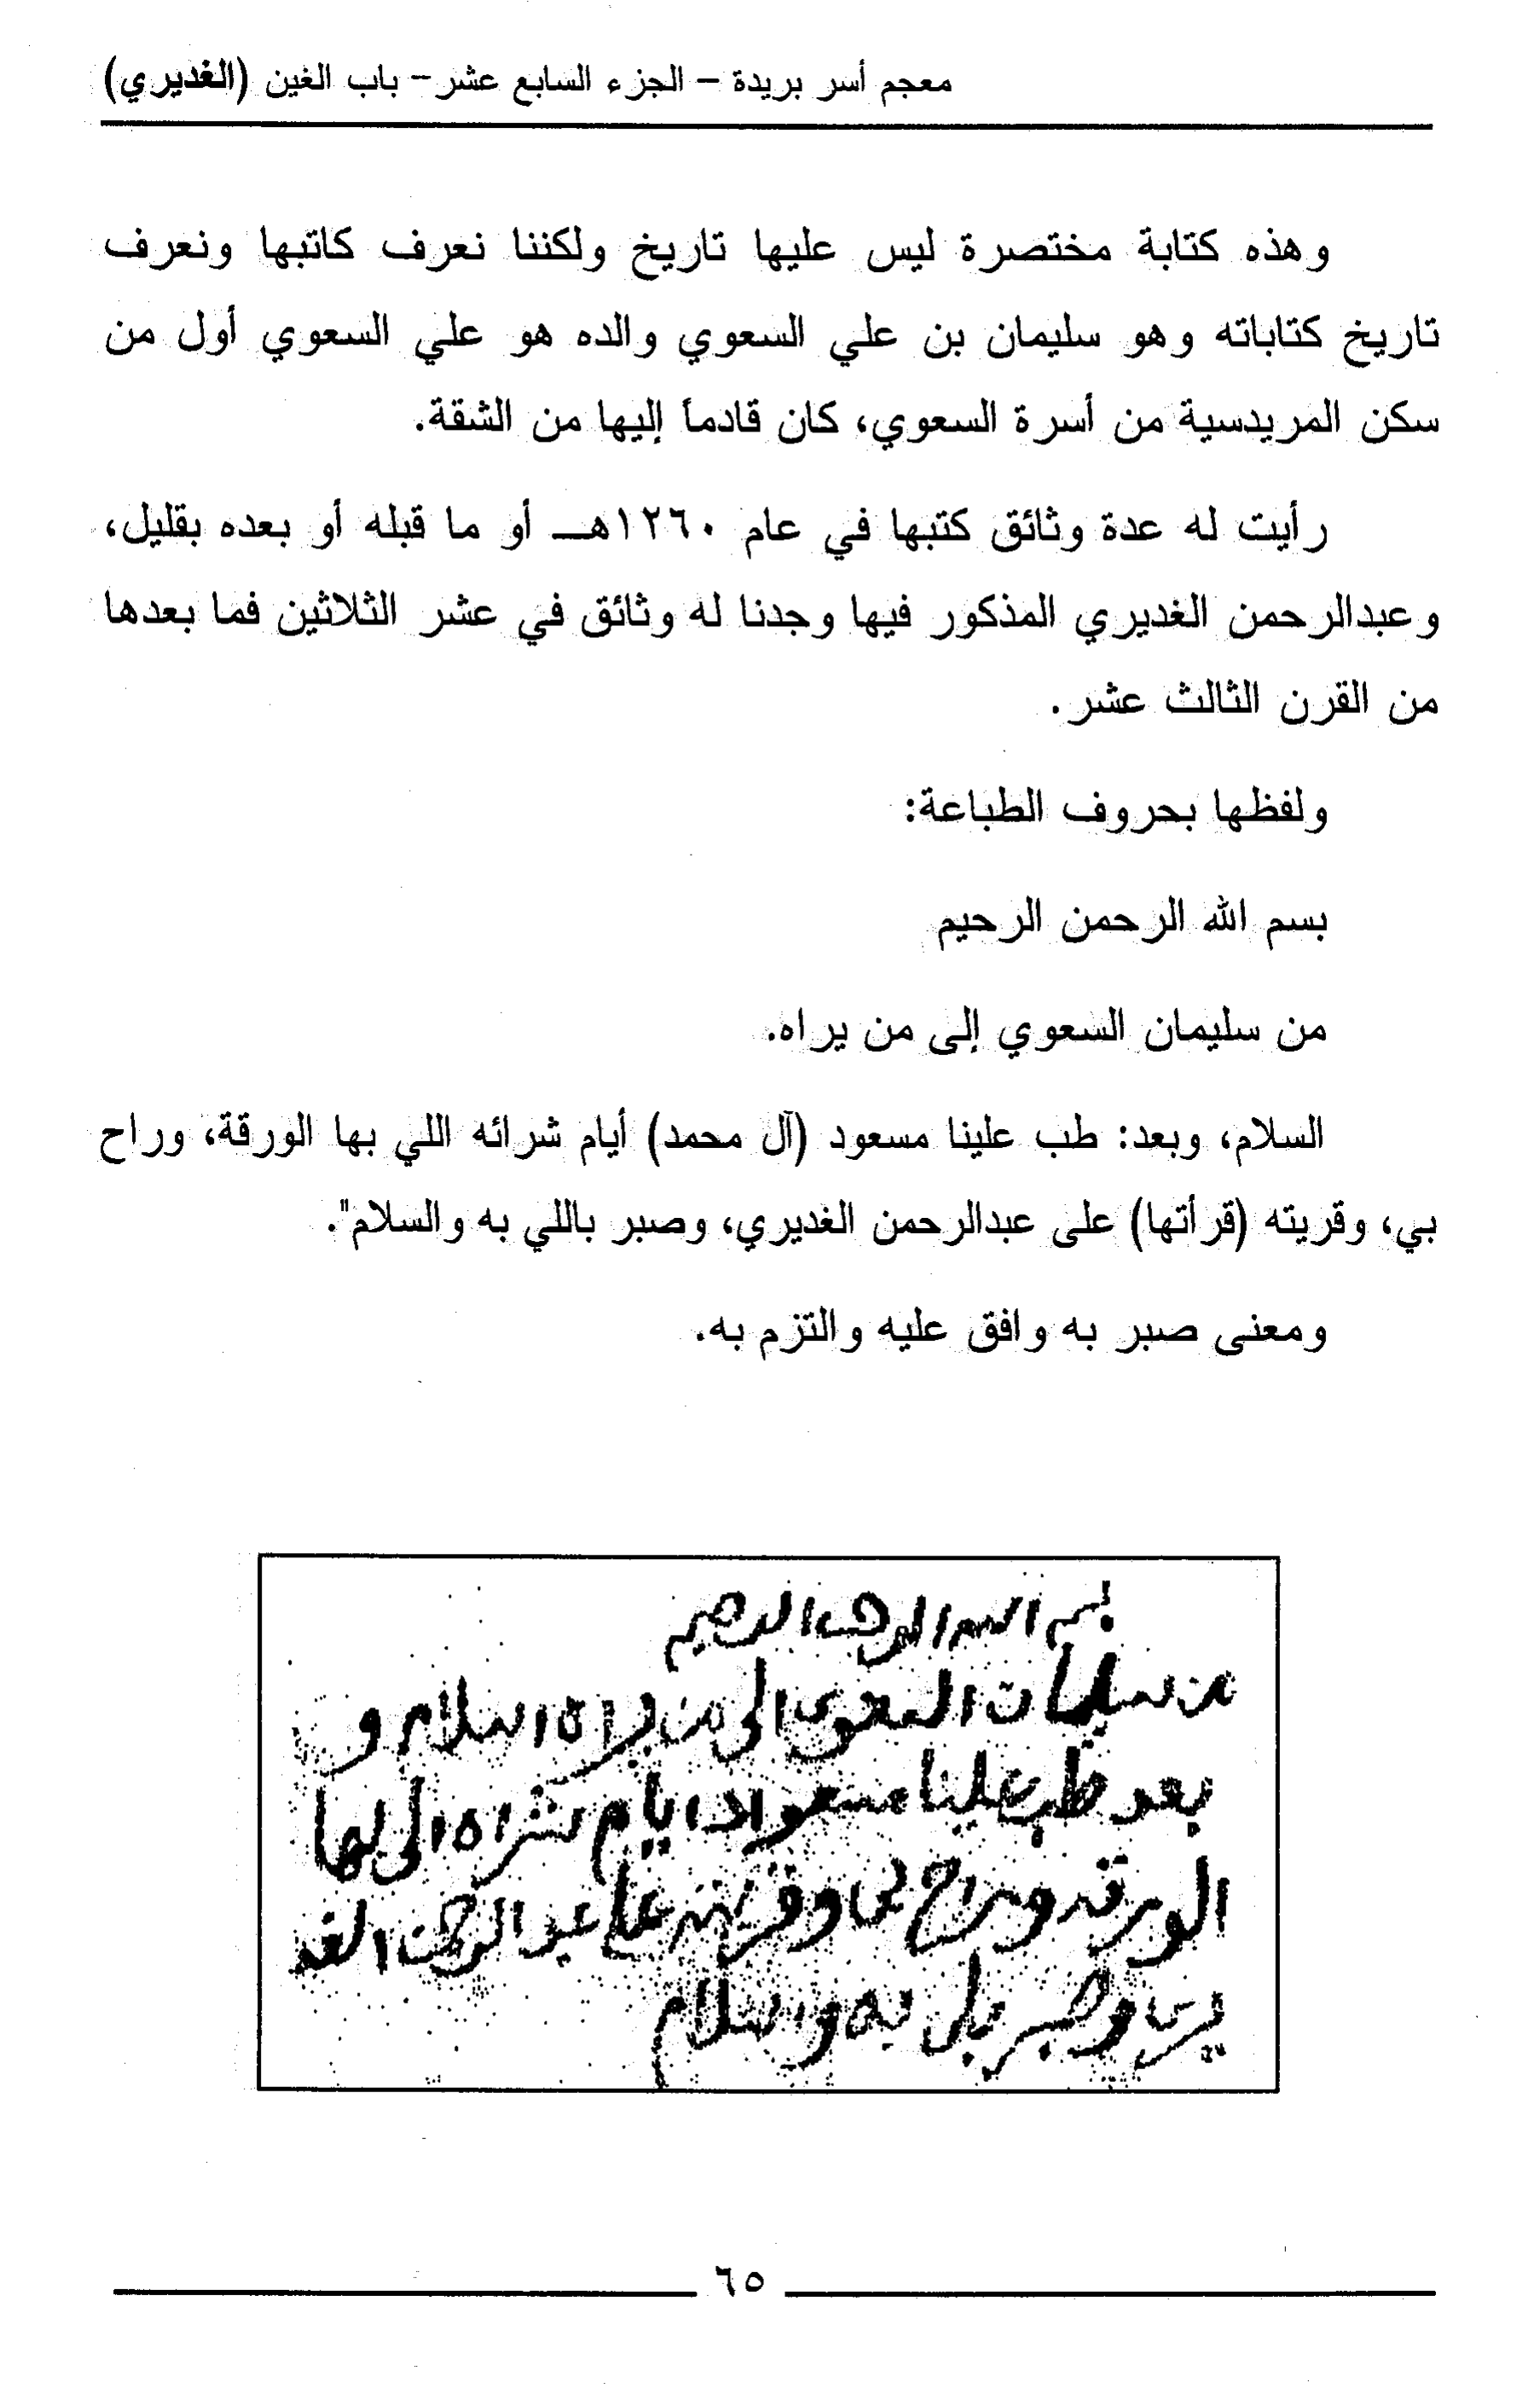 معجم أسر بريدة – الجزء السابع عشر– باب الغين (الغديري)
وهذه كتابة مختصرة ليس عليها تاريخ ولكننا نعرف كاتبها ونعرف
تاريخ كتاباته وهو سليمان بن علي السعوي والده هو علي السعوي أول من
سكن المريدسية من أسرة السعوي، كان قادماً إليها من الشقة.
رأيت له عدة وثائق كتبها في عام ١٢٦٠هـ أو ما قبله أو بعده بقليل،
وعبدالرحمن الغديري المذكور فيها وجدنا له وثائق في عشر الثلاثين فما بعدها
من القرن الثالث عشر.
ولفظها بحروف الطباعة:
بسم الله الرحمن الرحيم
من سليمان السعوي إلى من يراه.
السلام، وبعد: طب علينا مسعود (آل محمد) أيام شرائه اللي بها الورقة، وراح
بي، وقريته (قرأتها) على عبدالرحمن الغديري، وصبر باللي به والسلام".
ومعنى صبر به وافق عليه والتزم به.
بسم الله الرحمن الرحيم
من سليمان السعوي الى من يراه السلام و
بعد طب علينا مسعود ايام شراه الي بها
الورقه وراح بي وقريته على عبد الرحمن الغد
يري وصبر بال به وسلام
٦٥